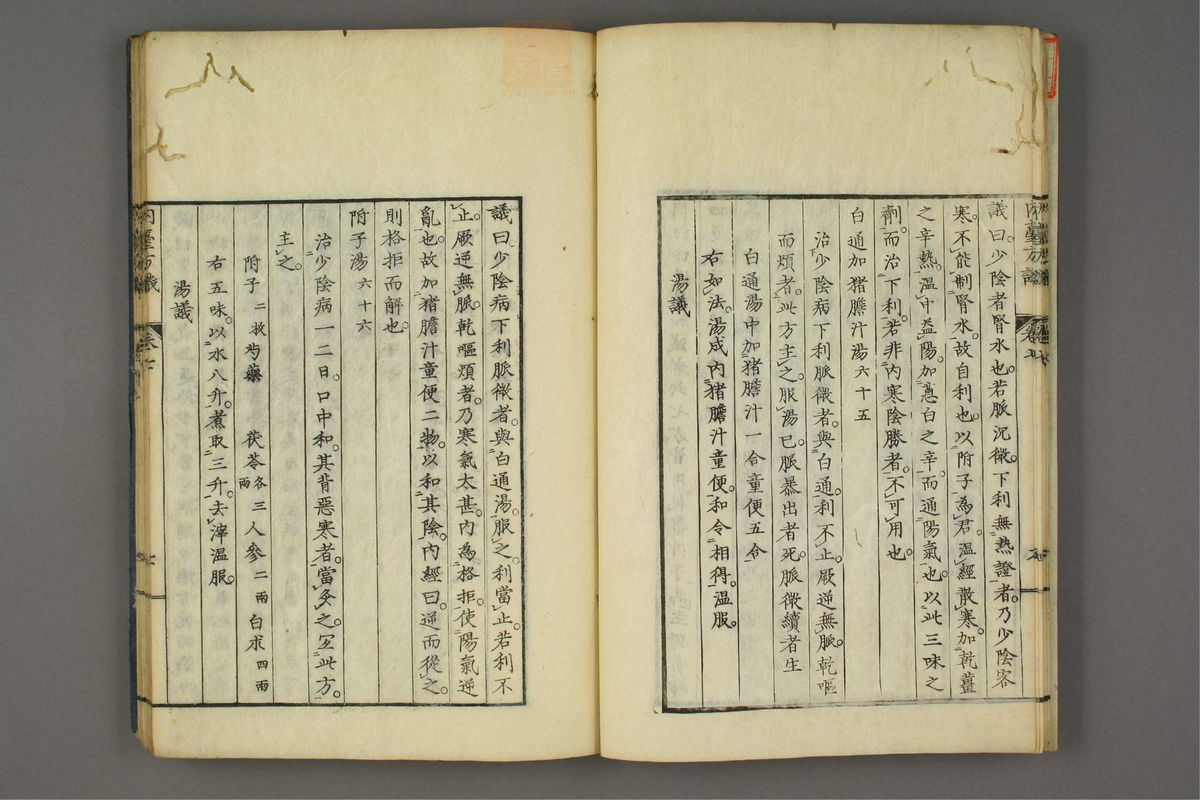 議曰少陰者腎水也。若脈沉微。下利無熱證者。乃少陰客
寒。不能制腎水。故自利也。以附子為君。溫經散寒。加乾薑
之辛熱。溫中益陽。加葱白之辛。而通陽氣也。以此三味之
劑。而治下利。若非內寒陰勝者。不可用也。
白通加猪膽汁湯六十五
治少陰病下利脈微者。與白通。利不止。厥逆無脈。乾嘔
而煩者。此方主之。服湯已。脈暴出者死。脈微續者生
白通湯中加猪膽汁一合童便五合
右如法。湯成內猪膽汁童便。和令相得。溫服。
湯議
議曰。少陰病下利脈微者。與白通湯。服之。利當止。若利不
止。厥逆無脈。乾嘔煩者。乃寒氣太甚。內為格拒。使陽氣逆
亂也。故加猪膽汁童便二物。以和其陰。內經曰。逆而從之。
則格拒而解也。
附子湯六十六
治少陰病一二日。口中和。其背惡寒者。當灸之。宜此方。
主之。
附子二枚芍藥 茯苓各三兩人參二兩白朮四兩
右五味。以水八升。煮取三升。去滓溫服。
湯議
兩臺方議
卷七